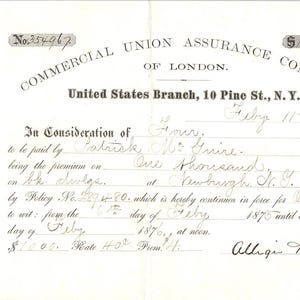 No. 354967 $
COMMERCIAL UNION ASSURANCE CO
OF LONDON.
United States Branch, 10 Pine St., N.Y.
Feby 11
In Consideration of Four
to be paid by Patrick McGuire
being the premium on One thousand
on bk dwlgs. at Newburgh N.Y.
by Policy No. which is hereby continued in force for
to wit: from the day of Feby 1875 until
day of Feby 1876, at noon.
$1000. Rate 40c Prem. $4.